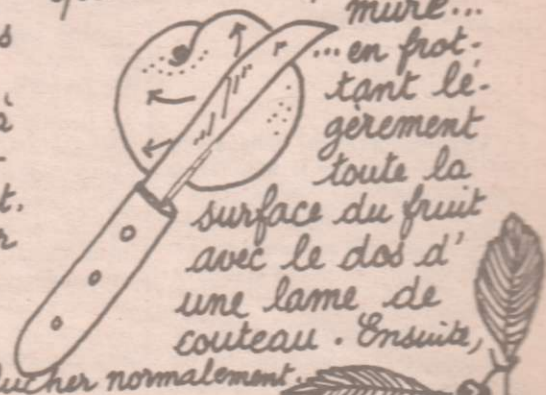 mure...
...en frot-
tant lé-
gèrement
toute la
surface du fruit
avec le dos d'
une lame de
couteau. Ensuite,
lucher normalement...